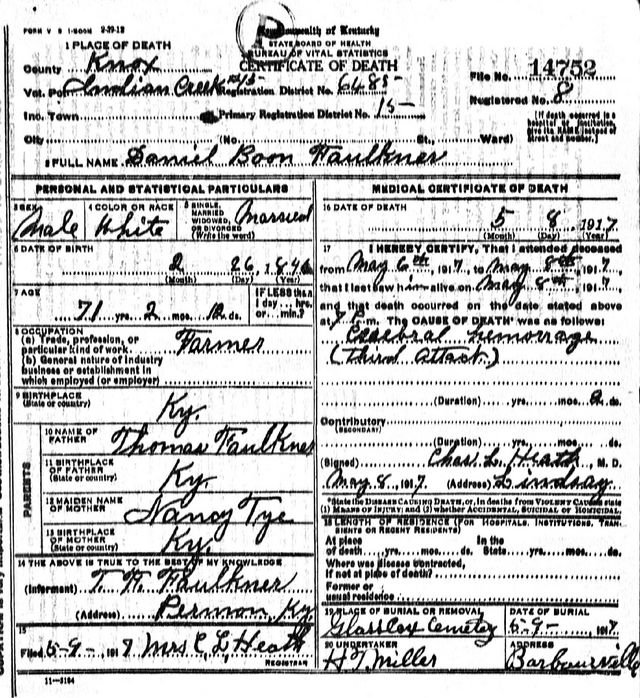 FORM V S 1-500M 2-29-12
Commonwealth of Kentucky
STATE BOARD OF HEALTH
BUREAU OF VITAL STATISTICS
CERTIFICATE OF DEATH
1 PLACE OF DEATH
County Knox
Vot. Pct Indian Creek #15 Registration District No. 6485 File No. 14752
Inc. Town Primary Registration District No. 15 Registered No. 8
City (No. St., Ward)
[If death occurred in a hospital or institution, give its NAME instead of street and number.]
2 FULL NAME Daniel Boon Faulkner
PERSONAL AND STATISTICAL PARTICULARS
3 SEX Male
4 COLOR OR RACE White
5 SINGLE, MARRIED WIDOWED, OR DIVORCED (Write the word) Married
6 DATE OF BIRTH
2 26, 1846
(Month) (Day) (Year)
7 AGE
71 yrs. 2 mos. 12 ds.
If LESS than 1 day... hrs. or... min.?
8 OCCUPATION
(a) Trade, profession, or particular kind of work Farmer
(b) General nature of industry
business or establishment in
which employed (or employer)
9 BIRTHPLACE
(State or country) Ky.
PARENTS
10 NAME OF FATHER Thomas Faulkner
11 BIRTHPLACE OF FATHER (State or country) Ky.
12 MAIDEN NAME OF MOTHER Nancy Tye
13 BIRTHPLACE OF MOTHER (State or country) Ky.
14 THE ABOVE IS TRUE TO THE BEST OF MY KNOWLEDGE
(Informant) T. H. Faulkner
(Address) Permon, Ky.
15
Filed 5-9-, 1917 Mrs C L Heath
REGISTRAR
11-3184
MEDICAL CERTIFICATE OF DEATH
16 DATE OF DEATH
5 8 1917
(Month) (Day) (Year)
17 I HEREBY CERTIFY, That I attended deceased
from May 6th, 1917, to May 8th, 1917,
that I last saw him alive on May 8th, 1917,
and that death occurred on the date stated above
at 7 P.m. The CAUSE OF DEATH* was as follows:
Cerebral hemorrage
(Third Attack.)
(Duration) yrs. mos. 2 ds.
Contributory
(SECONDARY)
(Duration) yrs. mos. ds.
(Signed) Chas. L. Heath, M. D.
May 8, 1917 (Address) Lindsay
*State the DISEASE CAUSING DEATH, or, in deaths from VIOLENT CAUSES state
(1) MEANS OF INJURY; and (2) whether ACCIDENTAL, SUICIDAL OR HOMICIDAL
18 LENGTH OF RESIDENCE (FOR HOSPITALS, INSTITUTIONS, TRANSIENTS OR RECENT RESIDENTS)
At place In the
of death yrs. mos. ds. State yrs. mos. ds.
Where was disease contracted,
if not at place of death?
Former or
usual residence
19 PLACE OF BURIAL OR REMOVAL DATE OF BURIAL
Glasscox Cemetey 5-9-, 1917
20 UNDERTAKER ADDRESS
H T Miller Barbourville